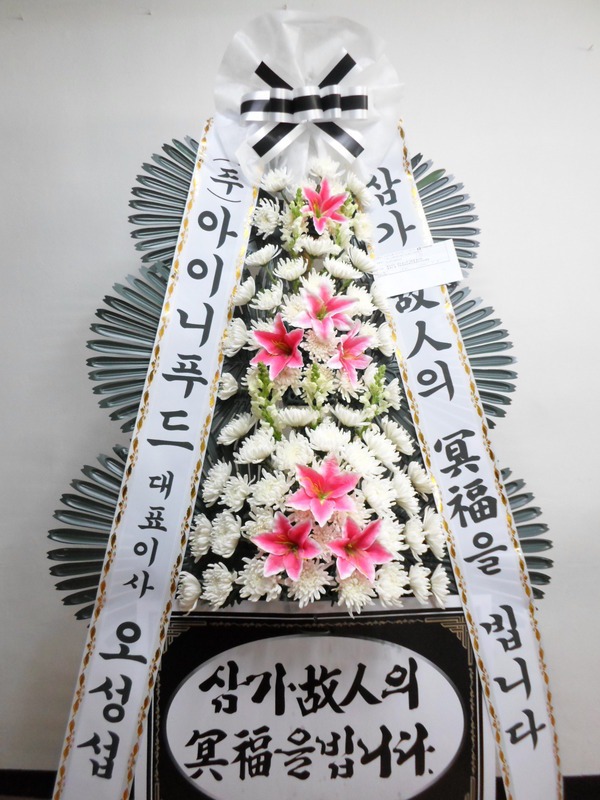 (주)아이니푸드 대표이사 오성섭
삼가 故人의 冥福을 빕니다
삼가 故人의
冥福을 빕니다.